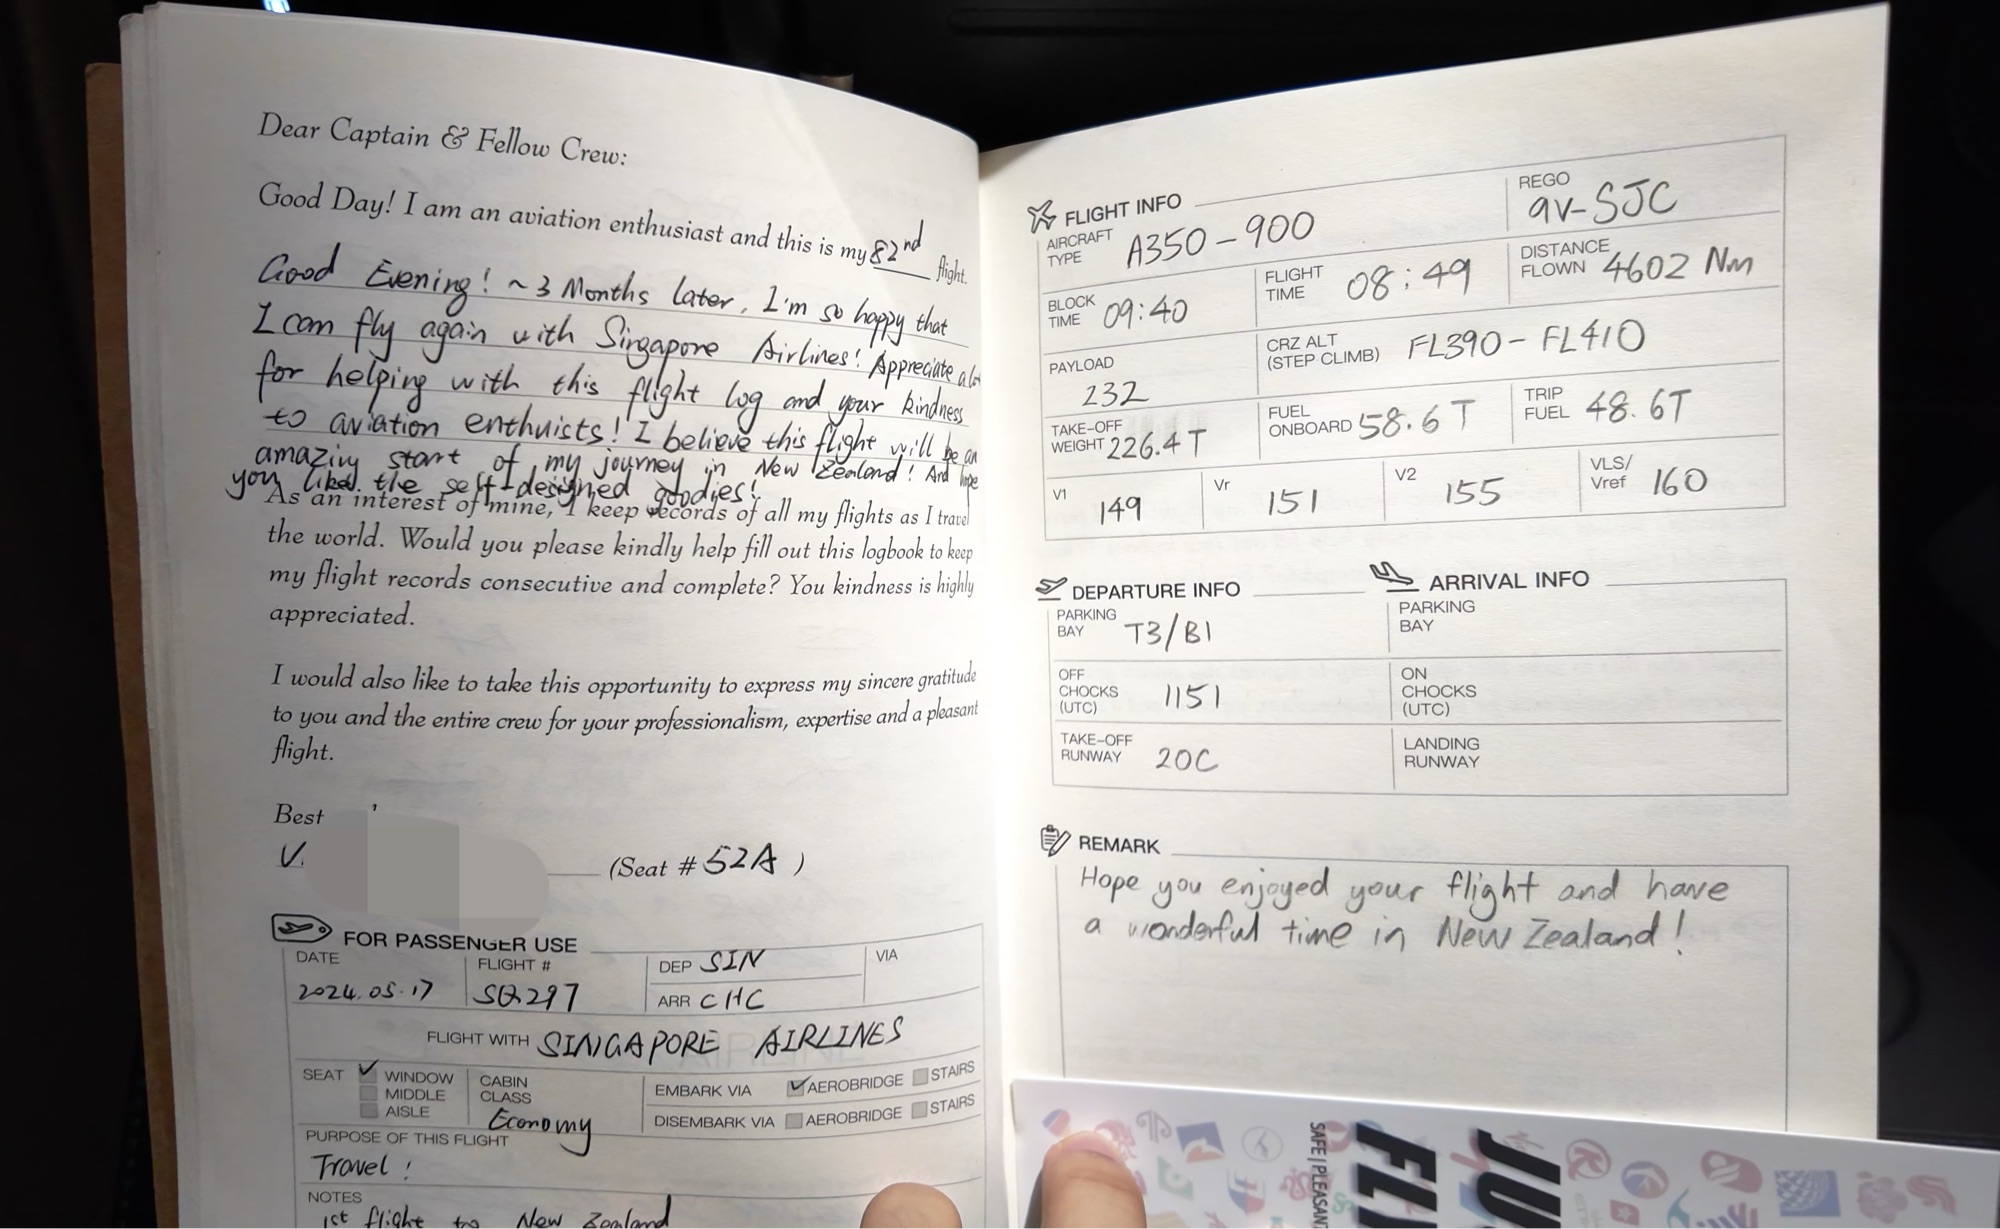 Dear Captain & Fellow Crew:
Good Day! I am an aviation enthusiast and this is my 82nd flight.
Good Evening! ~3 Months later, I'm so happy that
I can fly again with Singapore Airlines! Appreciate a lot
for helping with this flight log and your kindness
to aviation enthuists! I believe this flight will be an
amazing start of my journey in New Zealand! And hope
you liked the self-designed goodies!
As an interest of mine, I keep records of all my flights as I travel
the world. Would you please kindly help fill out this logbook to keep
my flight records consecutive and complete? You kindness is highly
appreciated.
I would also like to take this opportunity to express my sincere gratitude
to you and the entire crew for your professionalism, expertise and a pleasant
flight.
Best
V. (Seat # 52A )
FOR PASSENGER USE
DATE 2024.05.17
FLIGHT # SQ297
DEP SIN
ARR CHC
VIA
FLIGHT WITH SINGAPORE AIRLINES
SEAT WINDOW
MIDDLE
AISLE
CABIN
CLASS
Economy
EMBARK VIA AEROBRIDGE STAIRS
DISEMBARK VIA AEROBRIDGE STAIRS
PURPOSE OF THIS FLIGHT
Travel!
NOTES
1st flight to New Zealand
FLIGHT INFO
AIRCRAFT
TYPE A350-900
REGO
9V-SJC
BLOCK
TIME 09:40
FLIGHT
TIME 08:49
DISTANCE
FLOWN 4602 Nm
PAYLOAD
232
CRZ ALT
(STEP CLIMB) FL390 - FL410
TAKE-OFF
WEIGHT 226.4 T
FUEL
ONBOARD 58.6 T
TRIP
FUEL 48.6T
V1 149
Vr 151
V2 155
VLS/
Vref 160
DEPARTURE INFO
PARKING
BAY T3/B1
OFF
CHOCKS
(UTC) 1151
TAKE-OFF
RUNWAY 20C
ARRIVAL INFO
PARKING
BAY
ON
CHOCKS
(UTC)
LANDING
RUNWAY
REMARK
Hope you enjoyed your flight and have
a wonderful time in New Zealand!